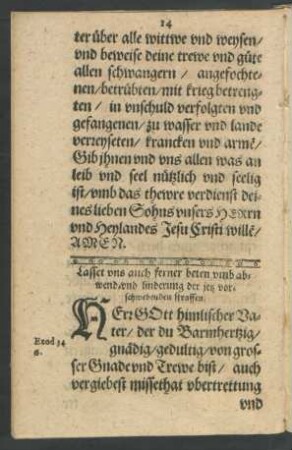 14
ter über alle wittwe vnd weysen/
vnd beweise deine trewe vnd güte
allen schwangern / angefochte-
nen/betrübten/mit krieg betreng-
ten / in vnschuld verfolgten vnd
gefangenen/zu wasser vnd lande
verreyseten/ krancken vnd armẽ/
Gib jhnen vnd vns allen was an
leib vnd seel nützlich vnd seelig
ist/vmb das thewre verdienst dei-
nes lieben Sohns vnsers HERrn
vnd Heylandes Jesu Cristi willẽ/
AMEN.
Lasset vns auch ferner beten vmb ab-
wend/vnd linderung der jetz vor-
schwebenden straffen.
HErr GOtt himlischer Va-
ter/ der du Barmhertzig/
Exod 34
6.
gnädig/gedultig/von gros-
ser Gnade vnd Trewe bist/ auch
vergiebest missethat vbertrettung
vnd